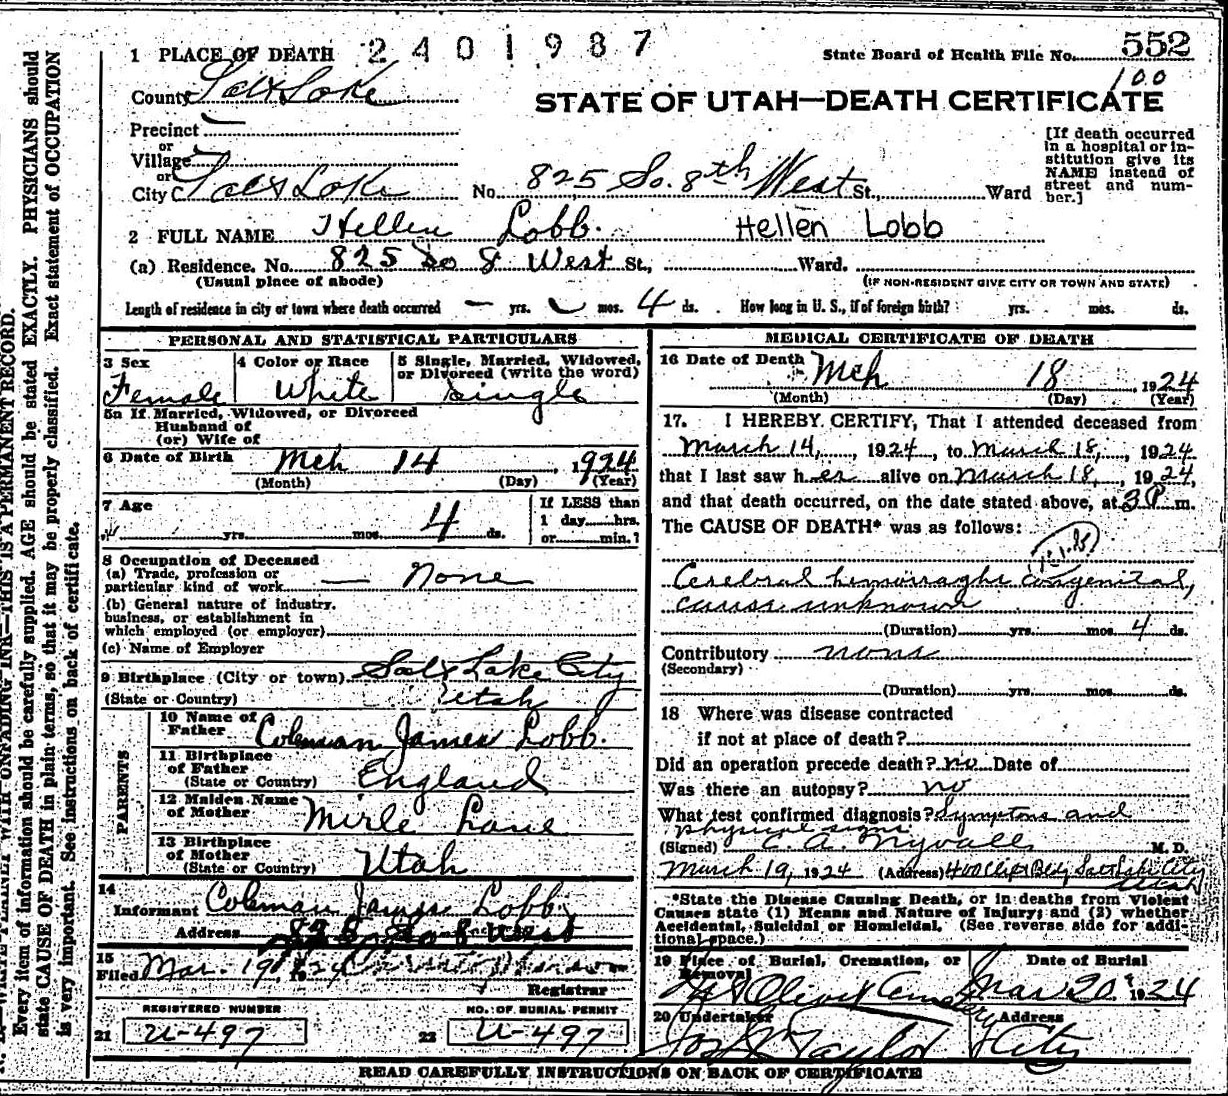 2401987
State Board of Health File No. 552
100
1 PLACE OF DEATH
County Salt Lake
STATE OF UTAH—DEATH CERTIFICATE
Precinct
or
Village
or
City Salt Lake No. 825 So. 8th West St., Ward
[If death occurred in a hospital or institution give its NAME instead of street and number.]
2 FULL NAME Hellen Lobb. Hellen Lobb
(a) Residence. No. 825 So 8 West St., Ward.
(Usual place of abode) (IF NON-RESIDENT GIVE CITY OR TOWN AND STATE)
Length of residence in city or town where death occurred — yrs. mos. 4 ds. How long in U. S., if of foreign birth? yrs. mos. ds.
PERSONAL AND STATISTICAL PARTICULARS
3 Sex
Female
4 Color or Race
White
5 Single, Married, Widowed, or Divorced (write the word)
Single
5a If Married, Widowed, or Divorced
Husband of
(or) Wife of
6 Date of Birth Mch 14, 1924
(Month) (Day) (Year)
7 Age
yrs. mos. 4 ds.
If LESS than
1 day hrs.
or min.?
8 Occupation of Deceased
(a) Trade, profession or
particular kind of work — none
(b) General nature of industry,
business, or establishment in
which employed (or employer)
(c) Name of Employer
9 Birthplace (City or town) Salt Lake City
(State or Country) Utah
PARENTS
10 Name of
Father Coleman James Lobb.
11 Birthplace
of Father
(State or Country) England
12 Maiden Name
of Mother Mirle Lane
13 Birthplace
of Mother
(State or Country) Utah
14
Informant Coleman James Lobb
Address 825 So 8 West
15
Filed Mar. 19 1924
Registrar
REGISTERED NUMBER
21 U-497
NO. OF BURIAL PERMIT
22 U-497
MEDICAL CERTIFICATE OF DEATH
16 Date of Death Mch 18, 1924
(Month) (Day) (Year)
17. I HEREBY CERTIFY, That I attended deceased from
March 14, 1924, to March 18, 1924
that I last saw her alive on March 18, 1924,
and that death occurred, on the date stated above, at 3 P m.
The CAUSE OF DEATH* was as follows:
Cerebral hemorraghe congenital,
cause unknown
(Duration) yrs. mos. 4 ds.
Contributory none
(Secondary)
(Duration) yrs. mos. ds.
18 Where was disease contracted
if not at place of death?
Did an operation precede death? no Date of
Was there an autopsy? no
What test confirmed diagnosis? Symptoms and
physical signs
(Signed) C. A. Nyvall M. D.
March 19, 1924 (Address) 400 Clift Bldg Salt Lake City
Utah
*State the Disease Causing Death, or in deaths from Violent
Causes state (1) Means and Nature of Injury; and (2) whether
Accidental, Suicidal or Homicidal. (See reverse side for additional space.)
19 Place of Burial, Cremation, or
Removal
Mt Olivet Cemetery
Date of Burial
Mar 20, 1924
20 Undertaker
Jos Wm Taylor
Address
City
READ CAREFULLY INSTRUCTIONS ON BACK OF CERTIFICATE
Every item of information should be carefully supplied. AGE should be stated EXACTLY. PHYSICIANS should
state CAUSE OF DEATH in plain terms, so that it may be properly classified. Exact statement of OCCUPATION
is very important. See instructions on back of certificate.